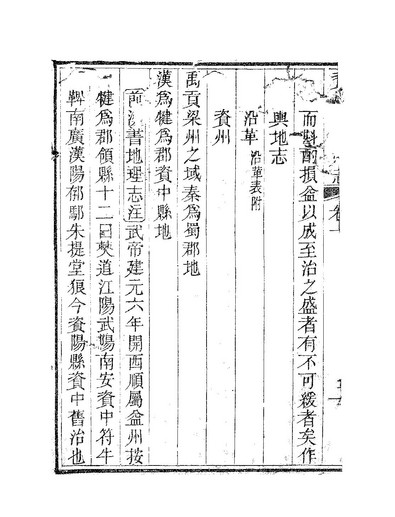 而斟酌損益以成至治之盛者有不可緩者矣作
輿地志
沿革 沿革表附
資州
禹貢梁州之域秦爲蜀郡地
漢爲犍爲郡資中縣地
前漢書地理志注武帝建元六年開西順屬益州按
犍爲郡領縣十二曰僰道江陽武陽南安資中符牛
鞞南廣漢陽郁鄢朱提堂狼今資陽縣資中舊治也